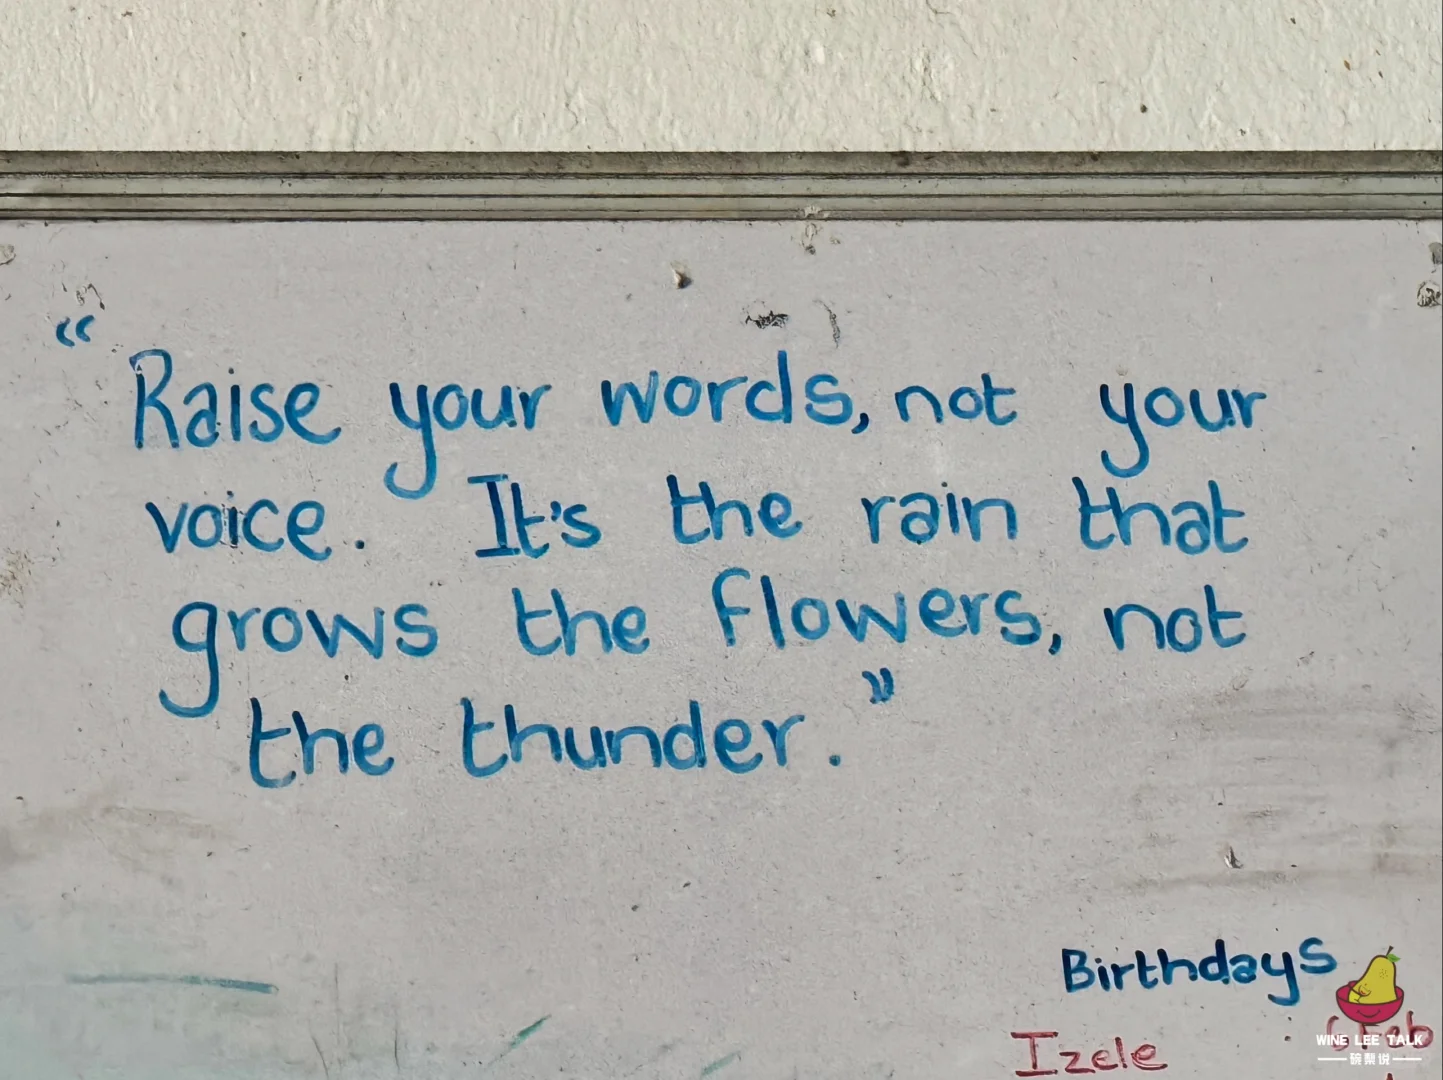 “Raise your words, not your
voice. It's the rain that
grows the flowers, not
the thunder.”
Birthdays
Izele
Feb
WINE LEE TALK
碗梨说